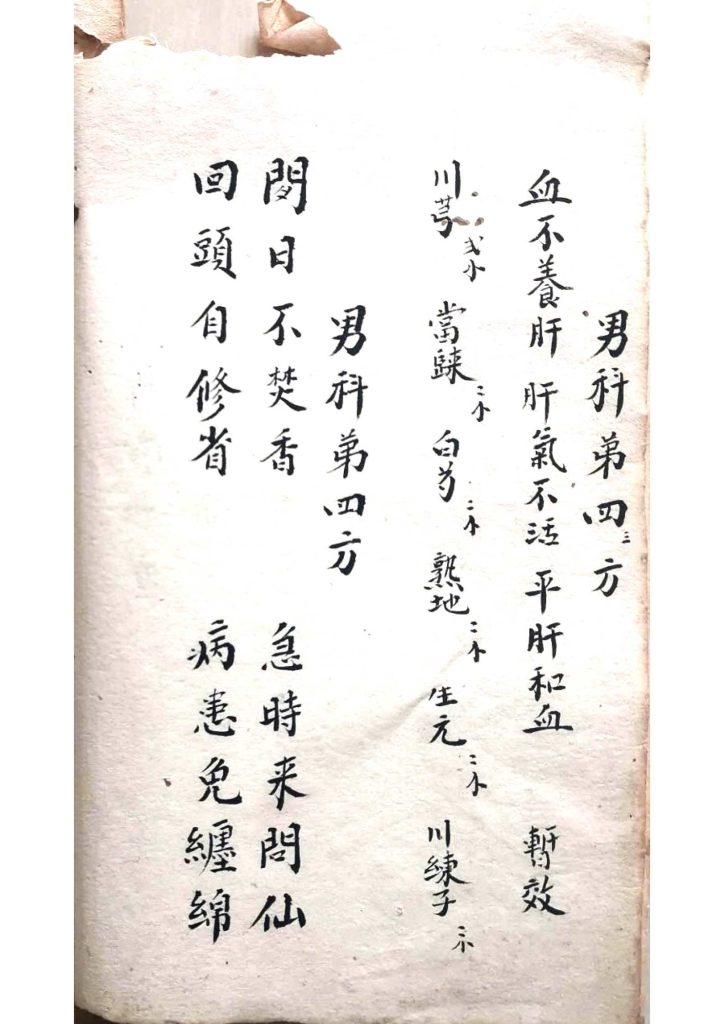 男科第四三方
血不養肝 肝氣不活 平肝和血 暫效
川芎弍小 當歸二小 白芍二小 熟地二小 生元二小 川練子二小
男科第四方
閒日不焚香 急時来問仙
回頭自修省 病患免纏綿